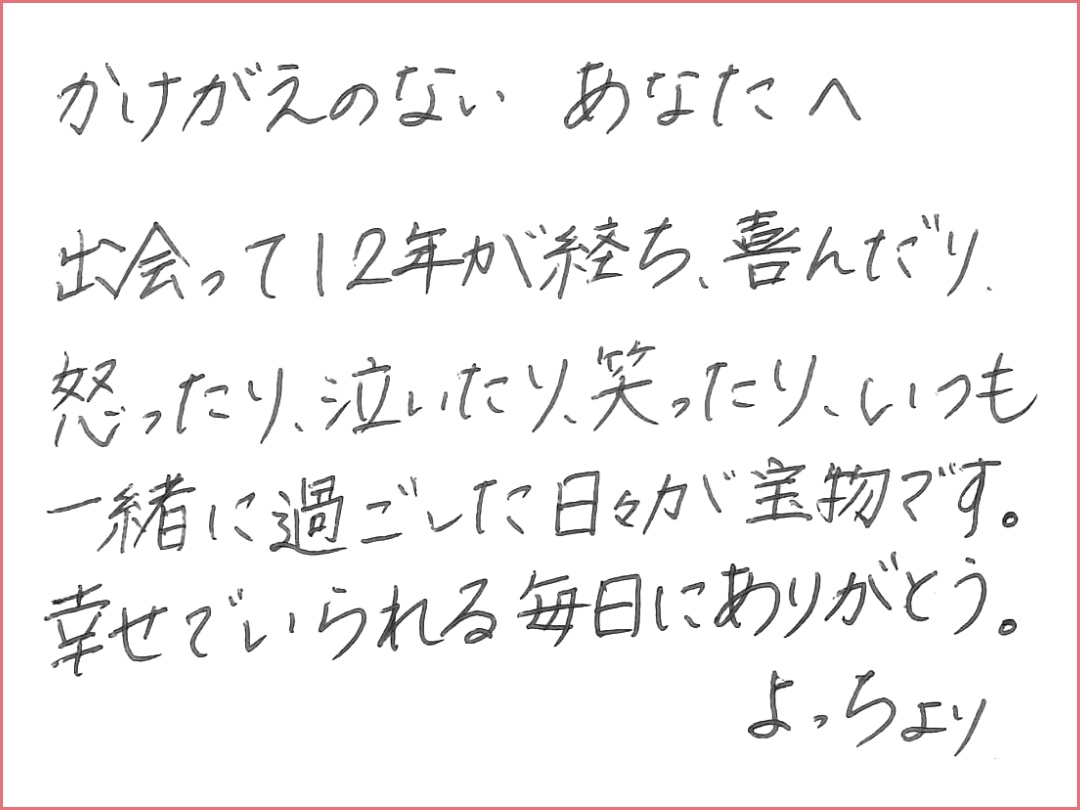 かけがえのない あなたへ
出会って12年が経ち、喜んだり、
怒ったり、泣いたり、笑ったり、いつも
一緒に過ごした日々が宝物です。
幸せでいられる毎日にありがとう。
よっちより